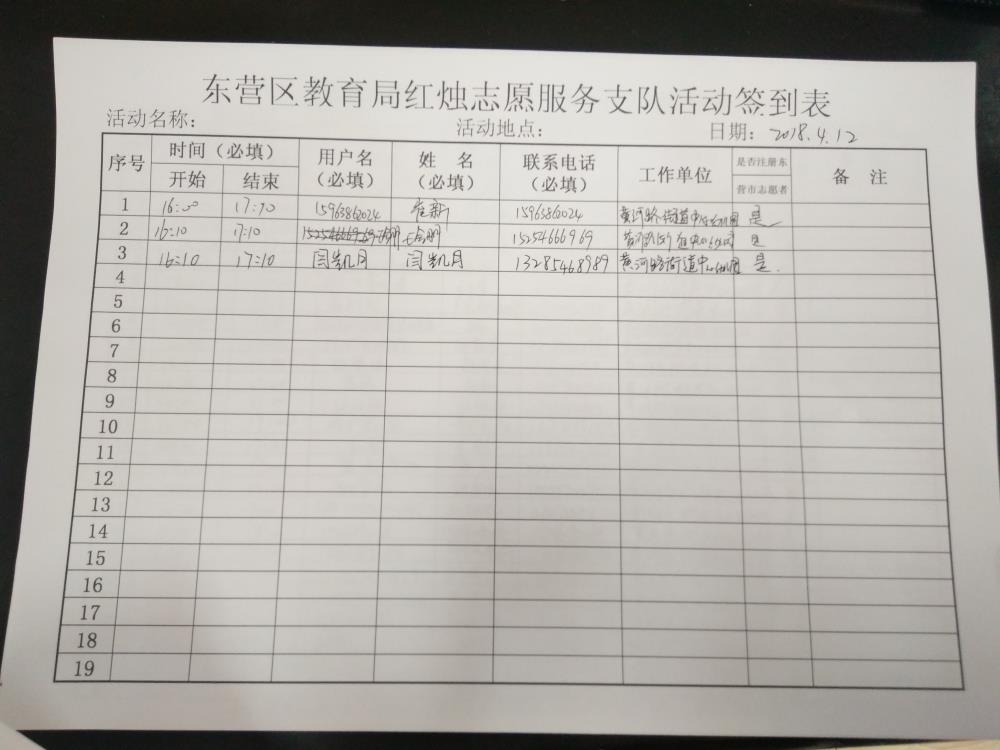 东营区教育局红烛志愿服务支队活动签到表
活动名称： 活动地点： 日期： 2018.4.12
序号 时间（必填） 用户名（必填） 姓 名（必填） 联系电话（必填） 工作单位 是否注册东营市志愿者 备 注
开始 结束
1 16:00 17:10 15963862024 崔新 15963862024 黄河路街道中心 是
2 16:10 17:10 15254666969 是
3 16:10 17:10 闫凯月 闫凯月 13285468989 黄河路街道中心幼儿园 是.
4
5
6
7
8
9
10
11
12
13
14
15
16
17
18
19